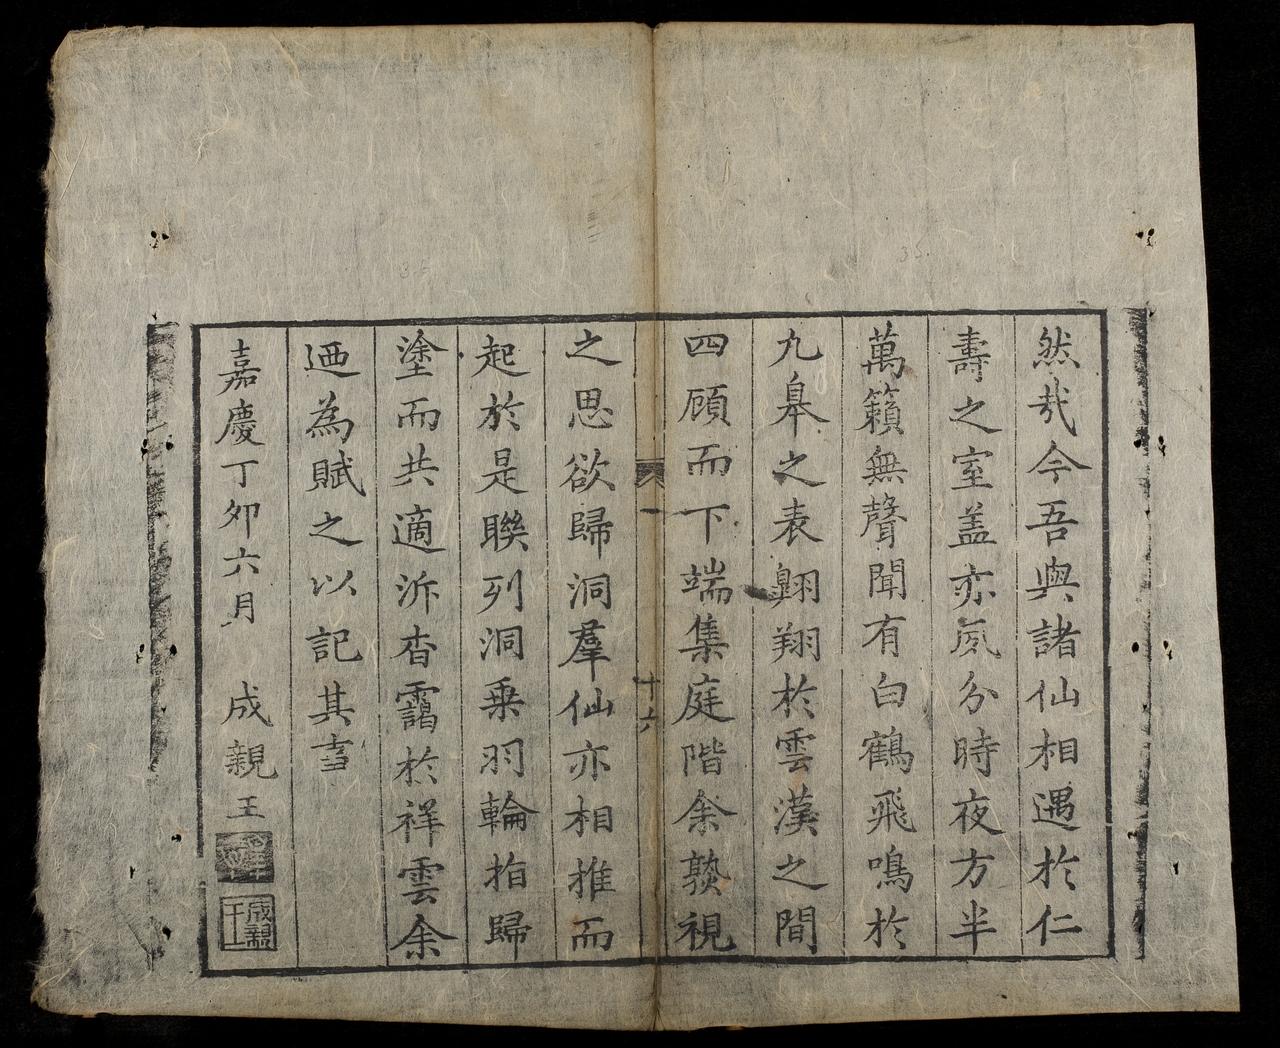 然哉今吾與諸仙相遇於仁
壽之室盖亦夙分時夜方半
萬籟無聲聞有白鶴飛鳴於
九臯之表翺翔於雲漢之間
四顧而下端集庭階余熟視
一 十六
之思欲歸洞羣仙亦相推而
起於是聯列洞乗羽輪指歸
塗而共適泝杳靄於祥雲余
迺為賦之以記其事
嘉慶丁卯六月 成親王
成親王
35